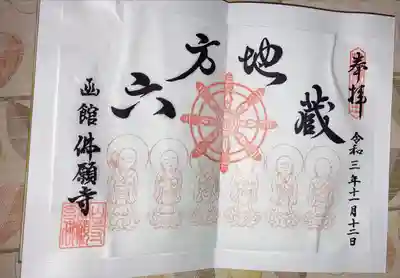 奉拝
令和三年十一月十二日
六方地蔵
函館佛願寺